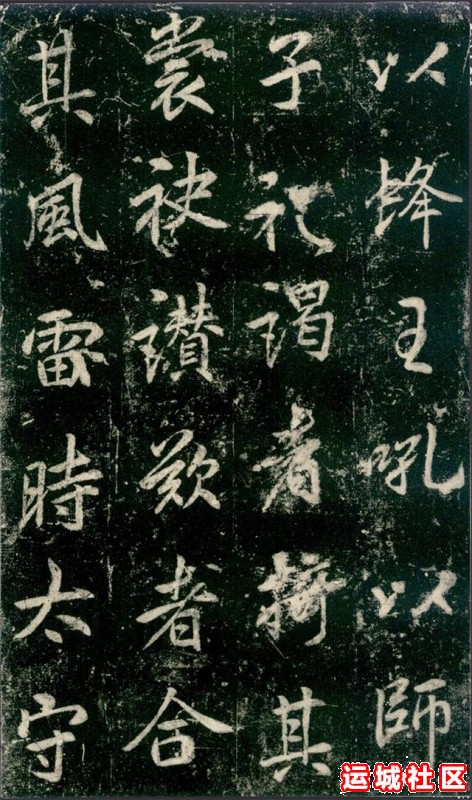 以蜂王吼以師
子礼謁者擠其
裳袂讚歎者合
其風雷時太守
运城社区